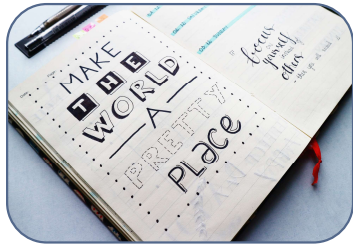 MAKE
THE
WORLD
A
PRETTY
PLACE
focus
on
yourself
others